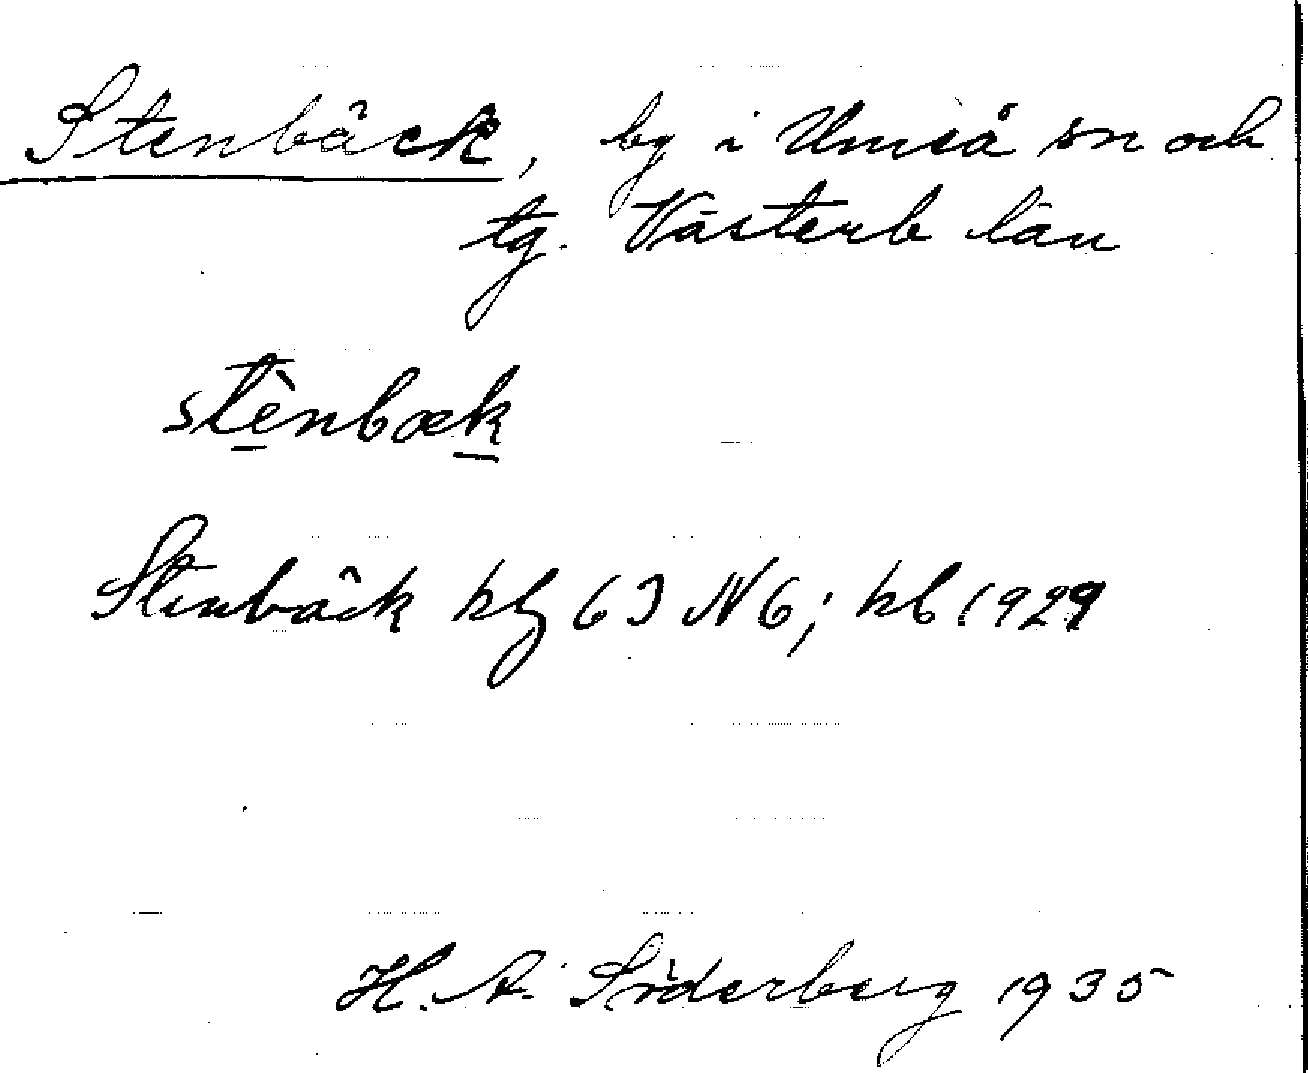 Stenbäck, by i Umeå sn och
tg. Västerb län
stènbæk
Stenbäck kbl 63 N6; kb 1929
H. A. Söderberg 1935